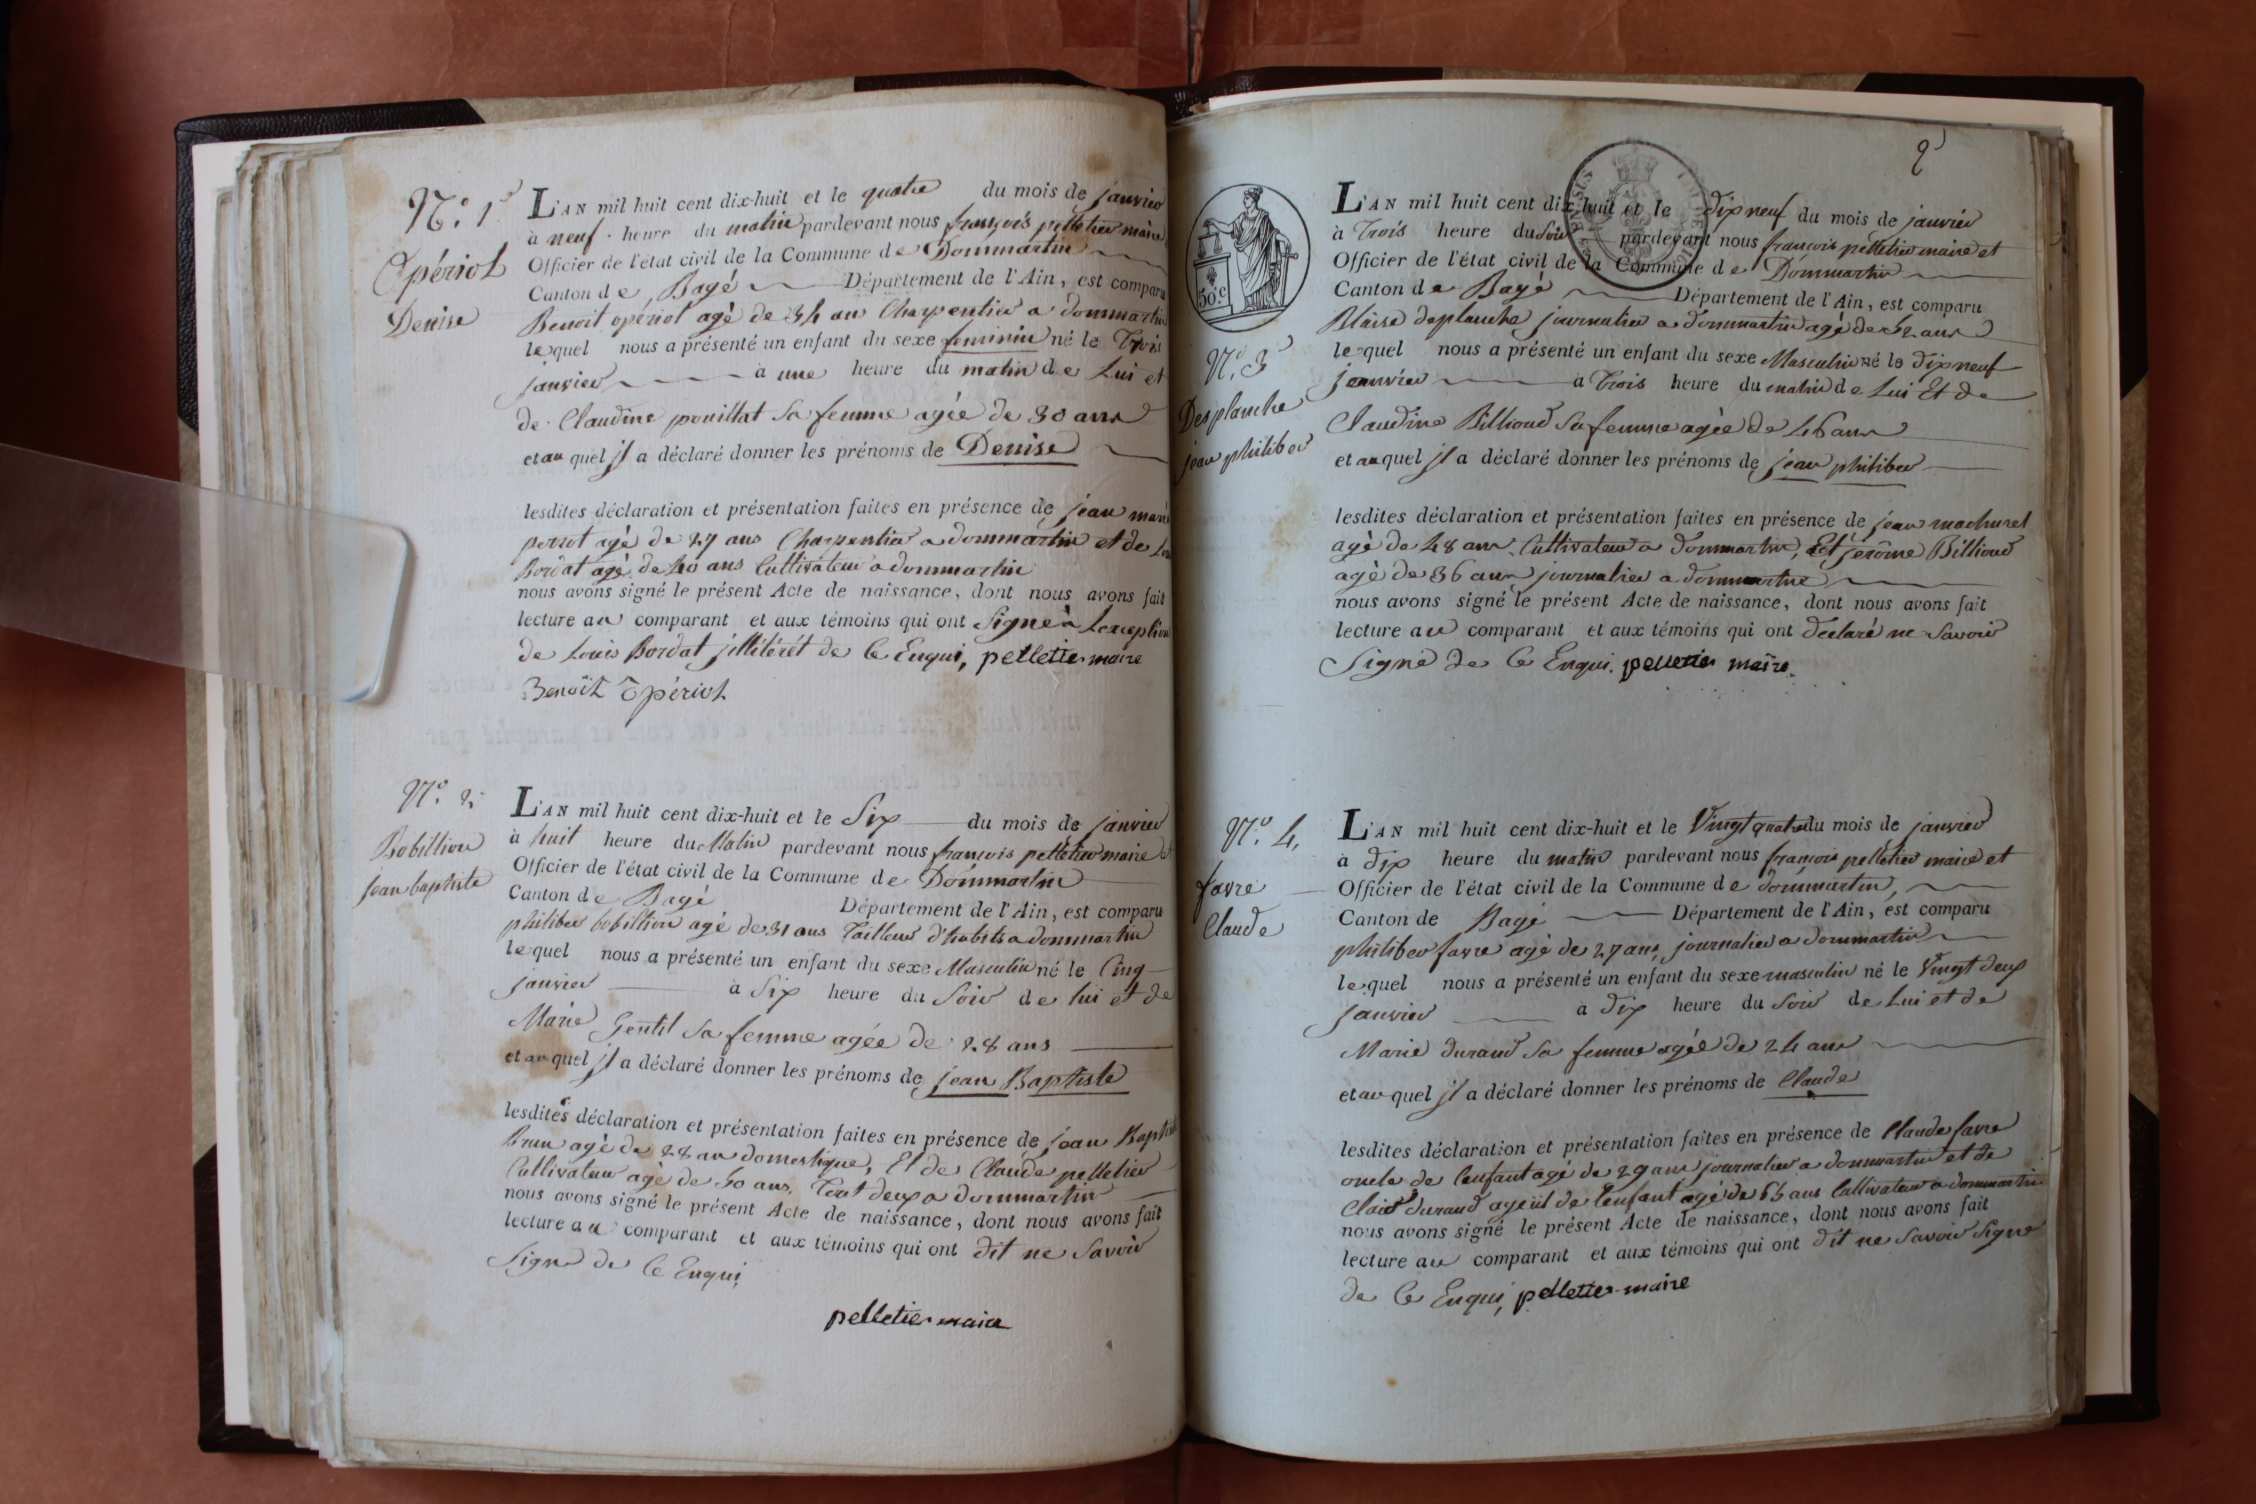 N.o 1
Opériot
Denise
L'AN mil huit cent dix-huit et le quatre du mois de janvier
à neuf heure du matin pardevant nous françois pelletier maire
Officier de l'état civil de la Commune de Dommartin
Canton de Bagé Département de l'Ain, est comparu
Benoit opériot agé de 34 ans Charpentier a dommartin
lequel nous a présenté un enfant du sexe feminin né le Trois
janvier à une heure du matin de Lui et
de Claudine pouillat Sa femme agée de 30 ans
et au quel jl a déclaré donner les prénoms de Denise
lesdites déclaration et présentation faites en présence de jean marie
perrot agé de 27 ans Charpentier a dommartin et de
Bordat agé de 40 ans Cultivateur a dommartin
nous avons signé le présent Acte de naissance, dont nous avons fait
lecture au comparant et aux témoins qui ont Signé à Lexception
de Louis Bordat jllitérét de Ce Enqui, pelletier maire
Benoît Opériot
N.o 2
Bobillion
jean baptiste
L'AN mil huit cent dix-huit et le Six du mois de janvier
à huit heure du Matin pardevant nous françois pelletier maire et
Officier de l'état civil de la Commune de Dommartin
Canton de Bagé Département de l'Ain, est comparu
philiber bobillion agé de 31 ans Tailleur d'habits a dommartin
lequel nous a présenté un enfant du sexe Masculin né le Cinq
janvier à Six heure du Soir de lui et de
Marie Gentil Sa femme agée de 28 ans
et au quel jl a déclaré donner les prénoms de jean Baptiste
lesdites déclaration et présentation faites en présence de jean Baptiste
Brun agé de 28 an domestique, Et de Claude pelletier
Cultivateur agé de 50 ans, Tout deux a dommartin
nous avons signé le présent Acte de naissance, dont nous avons fait
lecture au comparant et aux témoins qui ont dit ne Savoir
Signé de Ce Enqui
pelletier maire
2
50 c.
N.o 3
Desplanche
jean philiber
L'AN mil huit cent dix-huit et le dix neuf du mois de janvier
à Trois heure du Soir pardevant nous françois pelletier maire et
Officier de l'état civil de la Commune de Dommartin
Canton de Bagé Département de l'Ain, est comparu
Blaise deplanche journalier a dommartin agé de 52 ans
lequel nous a présenté un enfant du sexe Masculin né le dix neuf
janvier à Trois heure du matin de Lui Et de
Claudine Billioud Sa femme agée de 46 ans
et au quel jl a déclaré donner les prénoms de jean philiber
lesdites déclaration et présentation faites en présence de jean machuret
agé de 48 ans Cultivateur a dommartin, Et jerôme Billioud
agé de 36 ans journalier a dommartin
nous avons signé le présent Acte de naissance, dont nous avons fait
lecture au comparant et aux témoins qui ont declaré ne Savoir
Signé de Ce Enqui. pelletier maire.
N.o 4,
favre
Claude
L'AN mil huit cent dix-huit et le Vingt quatre du mois de janvier
à dix heure du matin pardevant nous françois pelletier maire et
Officier de l'état civil de la Commune de dommartin,
Canton de Bagé Département de l'Ain, est comparu
philiber favre agé de 27 ans, journalier a dommartin
lequel nous a présenté un enfant du sexe masculin né le Vingt deux
janvier à dix heure du Soir de Lui et de
Marie durand Sa femme agée de 24 ans
et au quel jl a déclaré donner les prénoms de Claude
lesdites déclaration et présentation faites en présence de Claude favre
oncle de Lenfant agé de 29 ans journalier a dommartin et de
durand de Lenfant agé de 66 ans Cultivateur a dommartin
nous avons signé le présent Acte de naissance, dont nous avons fait
lecture au comparant et aux témoins qui ont dit ne Savoir Signé
de Ce Enqui, pelletier maire